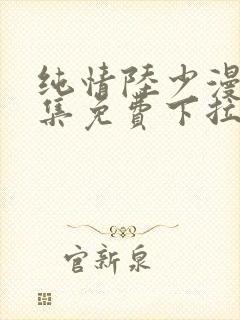 纯情陆少漫
集免费下拉
官新泉